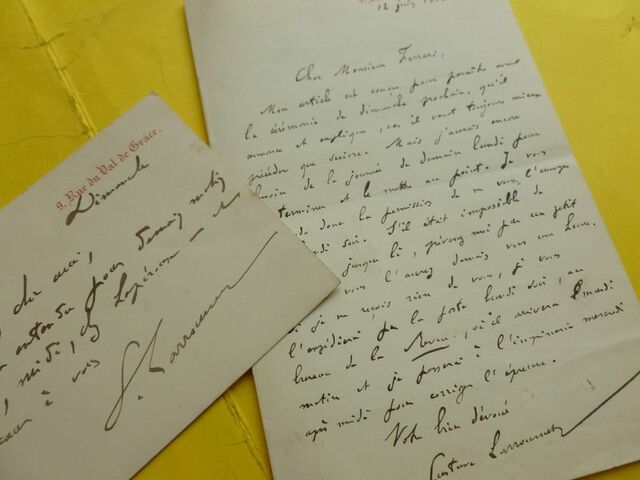 9, Rue du Val de Grâce.
Dimanche
cher ami,
entendu pour demain matin
midi, chez Lapérouse — et
à vous
G. Larroumet
12 juin
Cher Monsieur Ferrari,
Mon article est conçu pour paraître avant
la cérémonie de dimanche prochain, qu'il
annonce et explique, car il vaut toujours mieux
précéder que suivre. Mais j'aurais encore
besoin de la journée de demain lundi pour
terminer et le mettre au point. Je vous
donc la permission de ne vous l'envoyer
soir. S'il était impossible de
jusque là, prévenez moi par un petit
vous l'aurez demain vers une heure.
Si je ne reçois rien de vous, je vous
l'expédierai par la poste lundi soir, au
bureau de la Revue, où il arrivera mardi
matin et je passerai à l'imprimerie mercredi
après midi pour corriger l'épreuve.
Votre bien dévoué
Gustave Larroumet